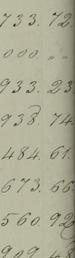 733. 72
000. „ „
933. 23
938. 74
484. 61.
673. 66
560. 92
909. 48